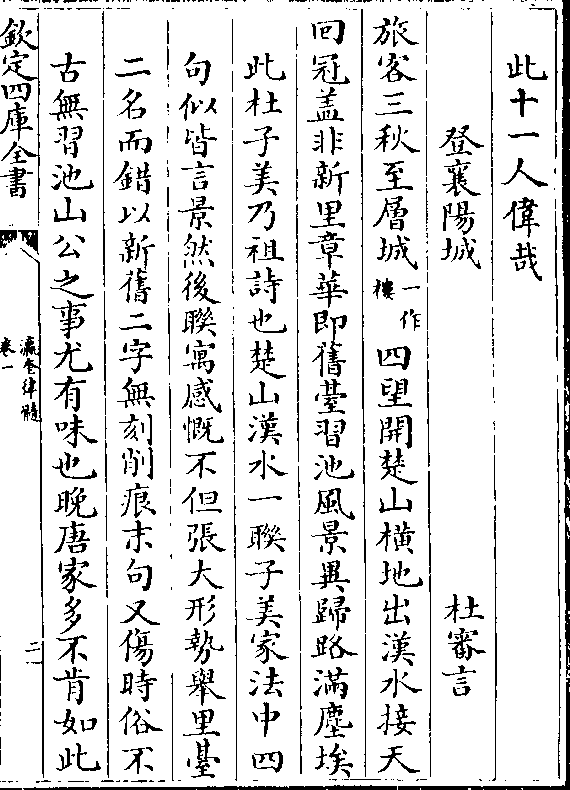 此十一人偉哉
登襄陽城
杜審言
旅客三秋至層城一作樓四望開楚山橫地出漢水接天
回冠蓋非新里章華即舊臺習池風景異歸路滿塵埃
此杜子美乃祖詩也楚山漢水一聯子美家法中四
句似皆言景然後聯寓感慨不但張大形勢舉里臺
二名而錯以新舊二字無刻削痕末句又傷時俗不
古無習池山公之事尤有味也晚唐家多不肯如此
欽定四庫全書
瀛奎律髓
卷一
二